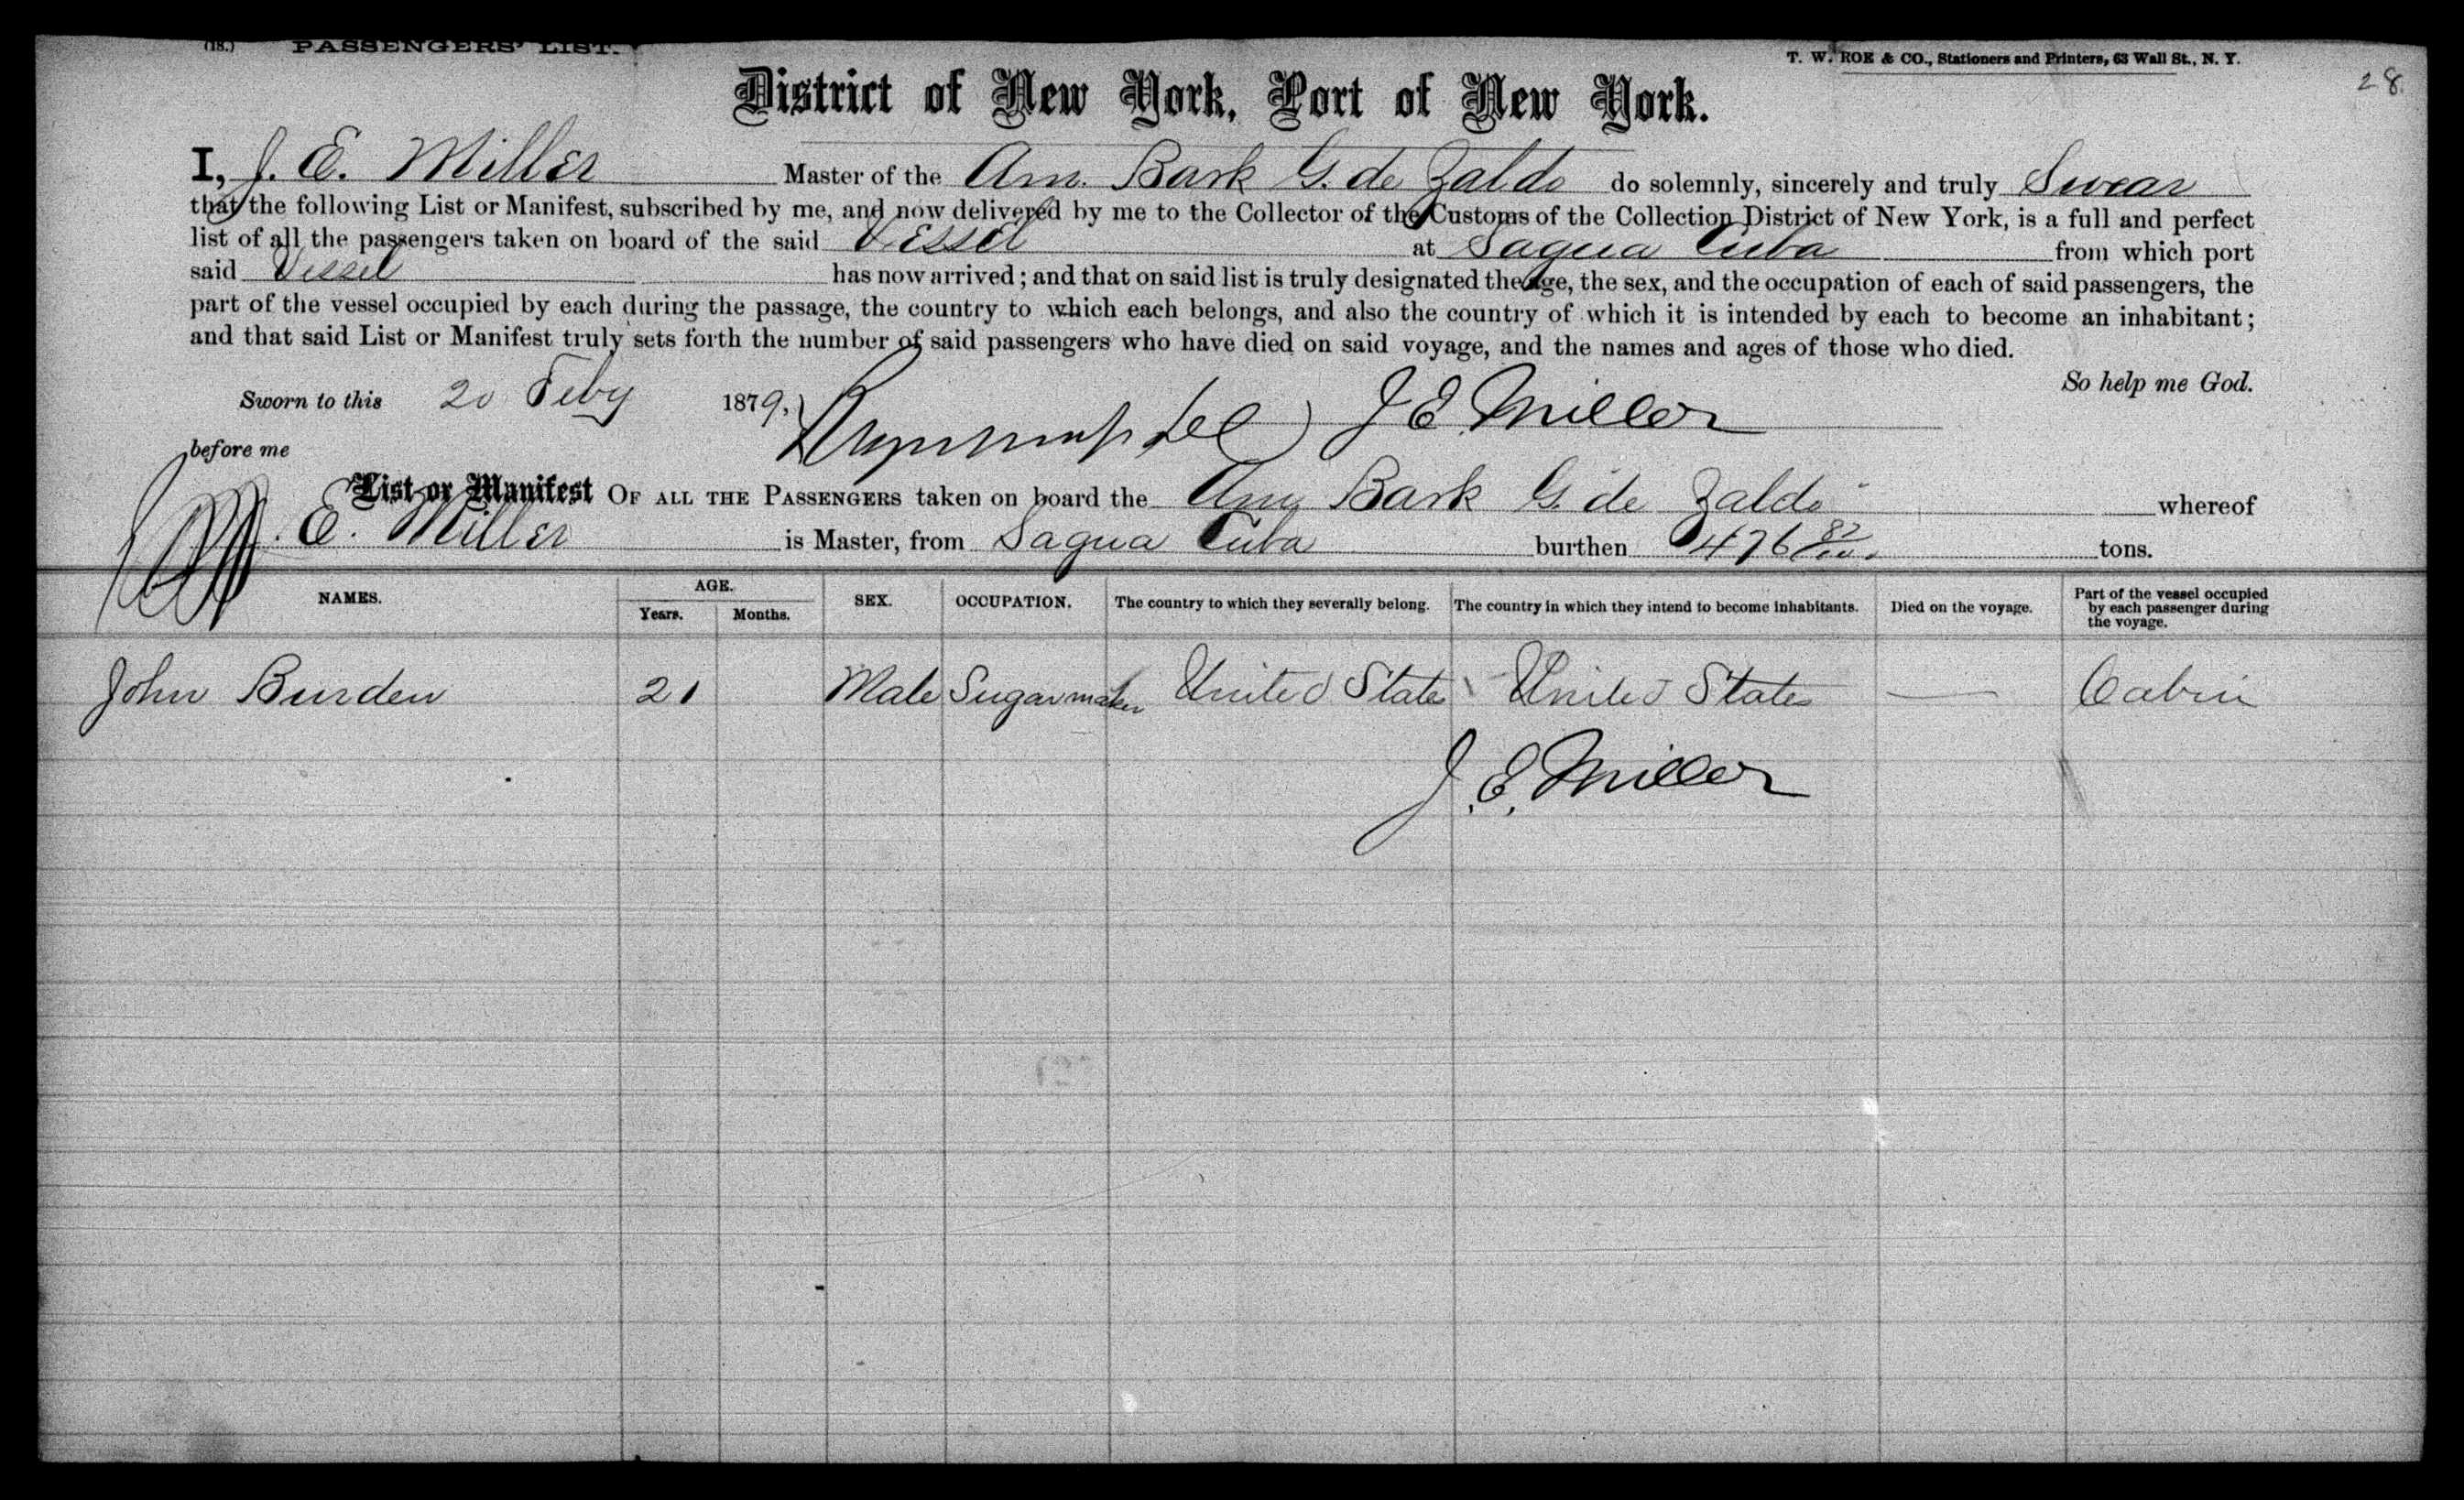 (18.) PASSENGERS' LIST.
T. W. ROE & CO., Stationers and Printers, 63 Wall St., N. Y.
28
District of New York, Port of New York.
I, J. E. Miller Master of the Am. Bark G. de Zaldo do solemnly, sincerely and truly Swear
that the following List or Manifest, subscribed by me, and now delivered by me to the Collector of the Customs of the Collection District of New York, is a full and perfect
list of all the passengers taken on board of the said Vessel at Sagua Cuba from which port
said Vessel has now arrived; and that on said list is truly designated the age, the sex, and the occupation of each of said passengers, the
part of the vessel occupied by each during the passage, the country to which each belongs, and also the country of which it is intended by each to become an inhabitant;
and that said List or Manifest truly sets forth the number of said passengers who have died on said voyage, and the names and ages of those who died.
So help me God.
Sworn to this 20 Feby 1879, J E Miller
before me
List or Manifest OF ALL THE PASSENGERS taken on board the Am Bark G. de Zaldo whereof
J. E. Miller is Master, from Sagua Cuba burthen 476 82/100 tons.
NAMES. AGE. Years. Months. SEX. OCCUPATION. The country to which they severally belong. The country in which they intend to become inhabitants. Died on the voyage. Part of the vessel occupied by each passenger during the voyage.
John Burden 21 Male Sugar maker United States United States — Cabin
J. E. Miller